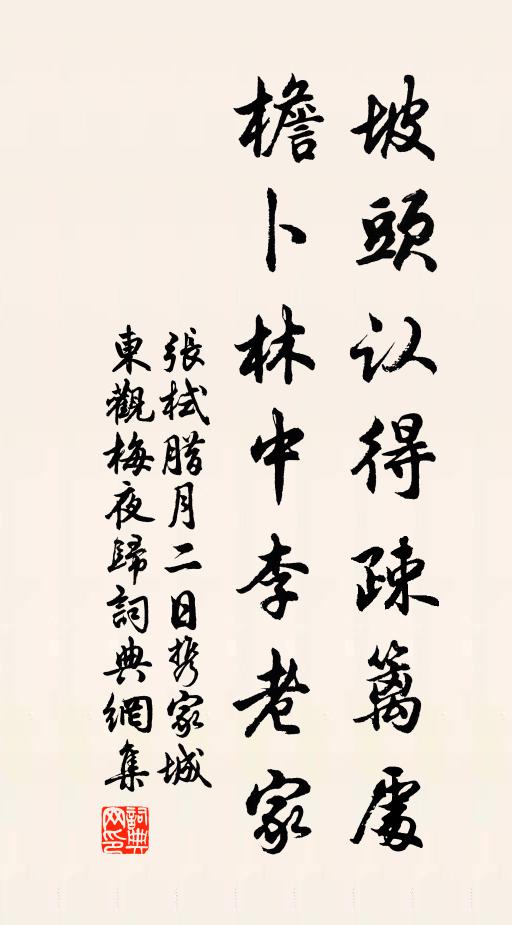 坡頭认得疎篱處
檐卜林中李老家
張栻腊月二日携家城
東觀梅夜歸詞典網集
詞典網印